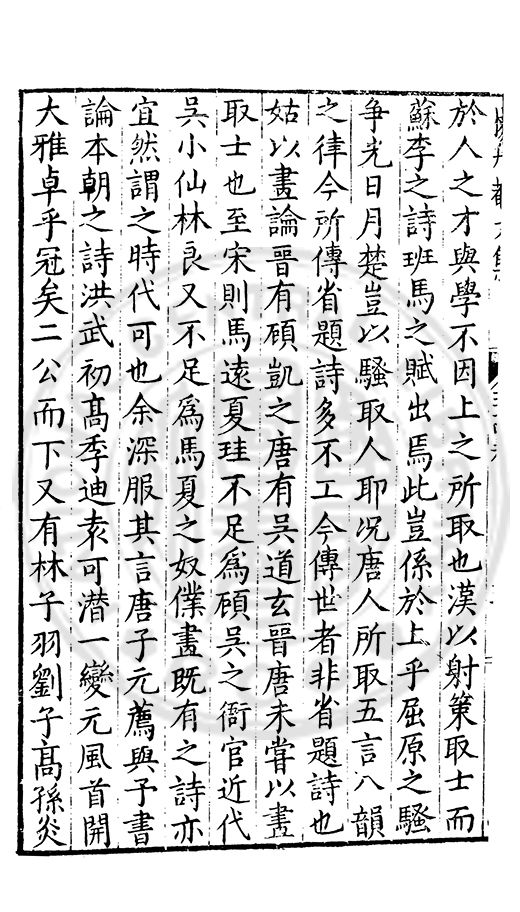 於人之才與學不因上之所取也漢以射策取士而
蘇李之詩班馬之賦出焉此豈係於上乎屈原之騷
爭光日月楚豈以騷取人耶况唐人所取五言八韻
之律今所傳省題詩多不工今傳世者非省題詩也
姑以畫論晉有顧凱之唐有吳道玄晉唐未甞以畫
取士也至宋則馬遠夏珪不足爲顧吳之衙官近代
吳小仙林良又不足爲馬夏之奴僕畫既有之詩亦
宜然謂之時代可也余深服其言唐子元薦與予書
論本朝之詩洪武初髙季迪袁可潜一變元風首開
大雅卓乎冠矣二公而下又有林子羽劉子髙孫炎